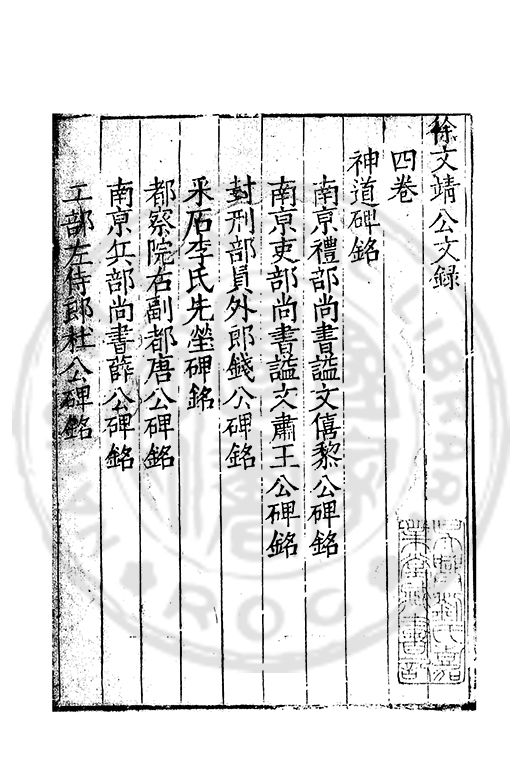 徐文靖公文録
四卷
神道碑銘
南京禮部尚書諡文僖黎公碑銘
南京吏部尚書諡文肅王公碑銘
封刑部員外郎錢公碑銘
采石李氏先塋碑銘
都察院右副都唐公碑銘
南京兵部尚書薛公碑銘
工部左侍郎杜公碑銘
吳興劉氏嘉
業堂藏書記